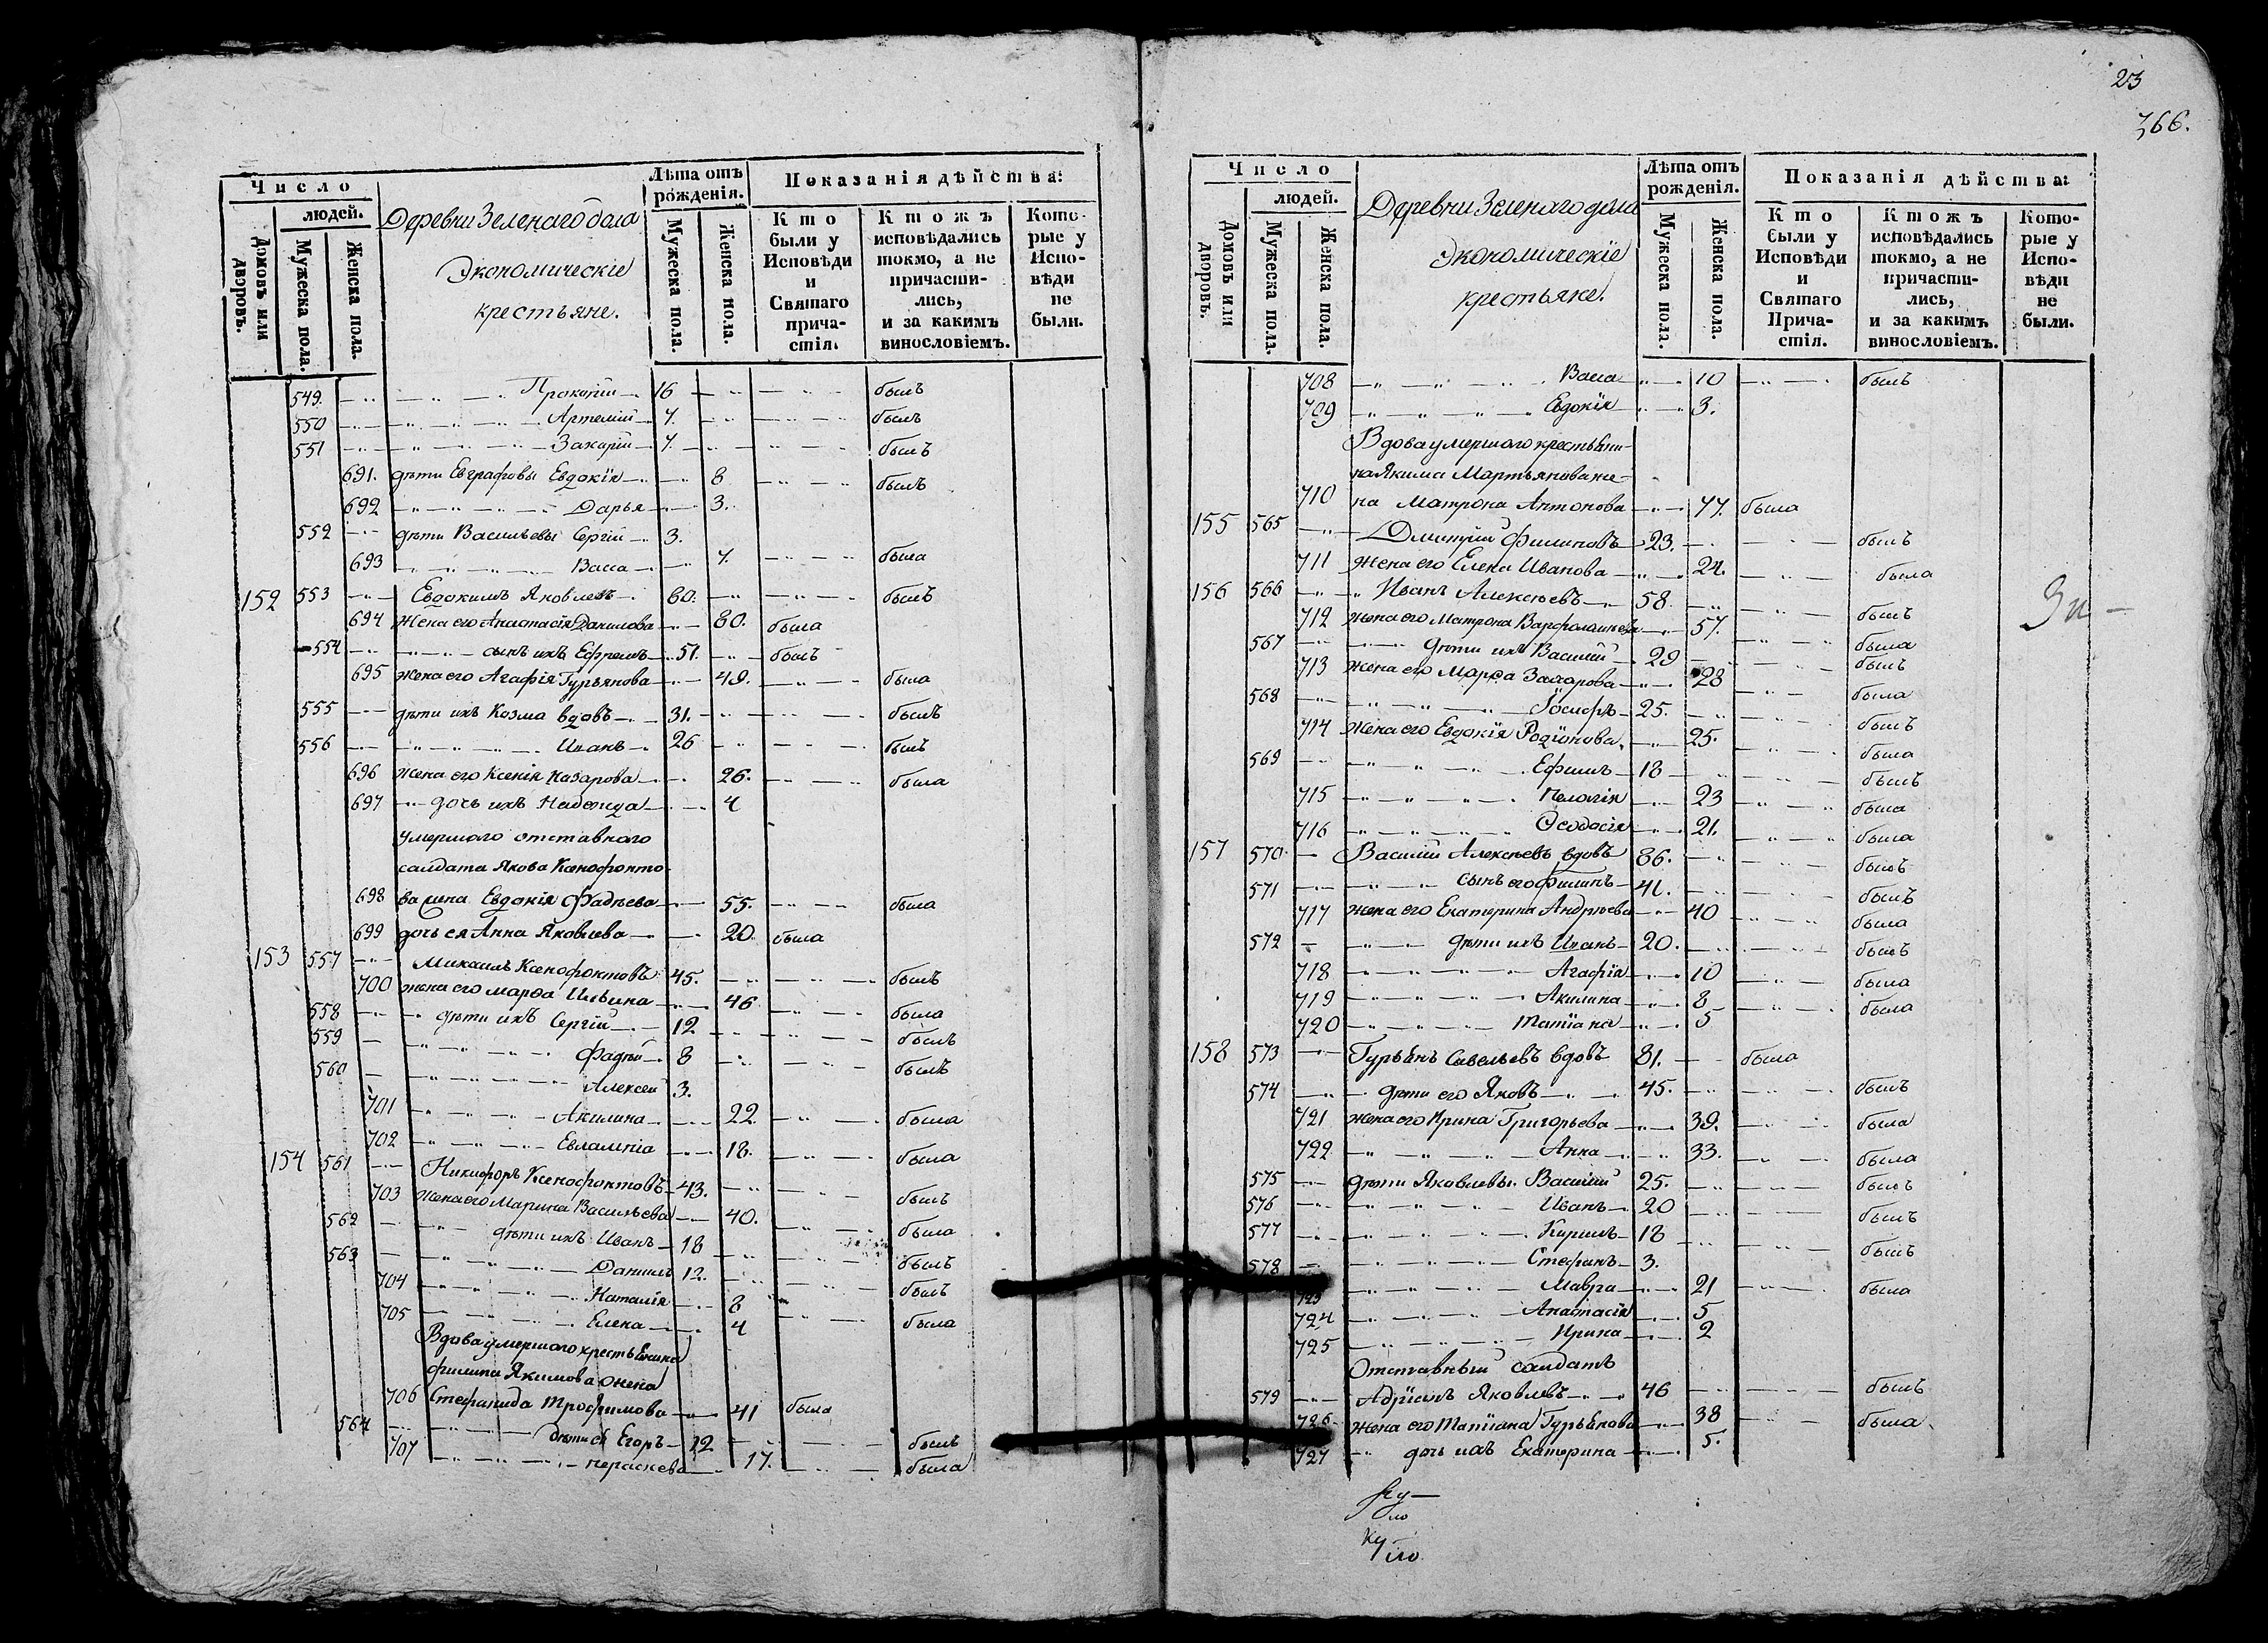 23
366.
Число
людей.
Домовъ или дворовъ.
Мужеска пола.
Женска пола.
Деревни Зеленаго дола
Экономическіе
крестьяне.
Лѣта отъ рожденія.
Мужеска пола.
Женска пола.
Показанія дѣйства:
Кто были у Исповѣди и Святаго причастія.
Ктожъ исповѣдались токмо, а не причастились, и за какимъ винословіемъ.
Которые у Исповѣди не были.
549. Прокопій 16 былъ
550 Артемій 7. былъ
551 Захарій 7. былъ
691. дѣти Евграфовы Евдокія 8 былъ
692 Дарья 3.
552 дѣти Васильевы Сергій 3.
693 Васса 7. была
152 553 Евдокимъ Яковлевъ 80. былъ
694 жена его Анастасія Данилова 80. была
554 сынъ ихъ Ефремъ 51. былъ
695 жена его Агафія Гурьянова 49. была
555 дѣти ихъ Козма вдовъ 31. былъ
556 Иванъ 26 былъ
696 жена его Ксенія Назарова 26. была
697 дочь ихъ Надежда 4
умершаго отставнаго
салдата Якова Ксенофонто
698 ва жена Евдокія Фадѣева 55. была
699 дочь ея Анна Яковлева 20. была
153 557 Михаилъ Ксенофонтовъ 45. былъ
700 жена его Марфа Ильина 46 была
558 дѣти ихъ Сергій 12 былъ
559 Фадѣй 8 былъ
560 Алексей 3.
701 Акилина 22. была
702 Евлампіа 18. была
154 561 Никифоръ Ксенофонтовъ 43. былъ
703 жена его Марина Васильева 40. была
562 дѣти ихъ Иванъ 18 былъ
563 Даниилъ 12. былъ
704 Наталія 8 была
705 Елена 4
Вдова умершаго крестьянина
Филипа Якимова жена
706 Стефанида Трофимова 41 была
564 дѣти ея Егоръ 12 былъ
707 Параскева 17. была
Число
людей.
Домовъ или дворовъ.
Мужеска пола.
Женска пола.
Деревни Зеленаго дола
Экономическіе
крестьяне.
Лѣта отъ рожденія.
Мужеска пола.
Женска пола.
Показанія дѣйства:
Кто были у Исповѣди и Святаго Причастія.
Ктожъ исповѣдались токмо, а не причастились, и за какимъ винословіемъ.
Которые у Исповѣди не были.
708 Васса 10 былъ
709 Евдокія 3.
Вдова умершаго крестьяни-
на Якима Мартьянова же-
710 на Матрона Антонова 77. была
155 565 Дмитрій Филиповъ 23. былъ
711 жена его Елена Иванова 24. была
156 566 Иванъ Алексѣевъ 58. былъ
712 жена его Матрона Варфоломѣева 57. была
567 дѣти ихъ Василій 29 былъ
713 жена его Марфа Захарова 28 была
568 Іосифъ 25. былъ
714 жена его Евдокія Родіонова 25. была
569 Ефимъ 18 былъ
715 Пелагія 23 была
716 Ѳеодосія 21. была
157 570 Василій Алексѣевъ вдовъ 86. былъ
571 сынъ его Филипъ 41. былъ
717 жена его Екатерина Андрѣева 40 была
572 дѣти ихъ Иванъ 20. былъ
718 Агафіа 10 была
719 Акилина 8 была
720 Татіана 5
158 573 Гурьянъ Савельевъ вдовъ 81. была
574 дѣти его Яковъ 45. былъ
721 жена его Ирина Григорьева 39. была
722 Анна 33. была
575 дѣти Яковлевы Василій 25. былъ
576 Иванъ 20 былъ
577 Кирилъ 18 былъ
578 Стефанъ 3.
723 Мавра 21 была
724 Анастасія 5
725 Ирина 2
Отставный салдатъ
579 Адріанъ Яковлевъ 46 былъ
726 жена его Татіана Гурьянова 38 была
727 дочь ихъ Екатерина 5.